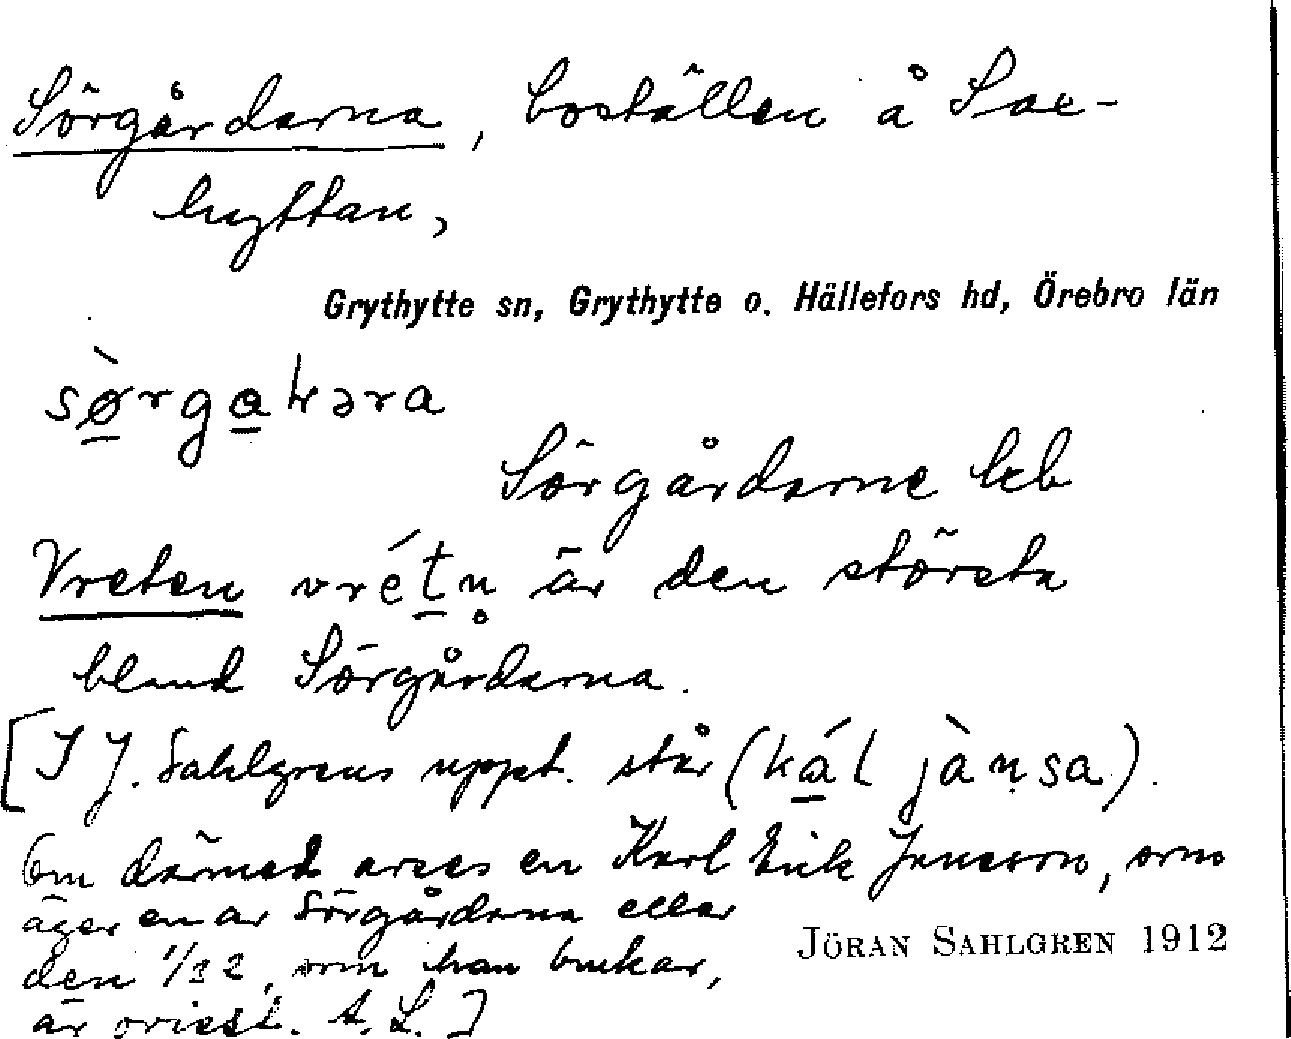 Sörgårdarna, boställen å Sax-
hyttan,
Grythytte sn, Grythytte o. Hällefors hd, Örebro län
sø̀rgaꞎəra
Sörgårdarne Hcb
Vreten vrétn̥ är den största
bland Sörgårdarna.
[I J. Sahlgrens uppt. står (kál jànsa).
Om därmed avses en Karl Erik Jansson, som
äger en av Sörgårdarna eller
den 1/32, som han brukar,
är ovisst. A. L.]
JÖRAN SAHLGREN 1912